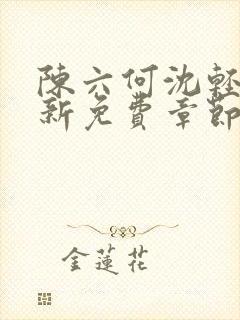 陳六何沈輕
新免費章節
金蓮花